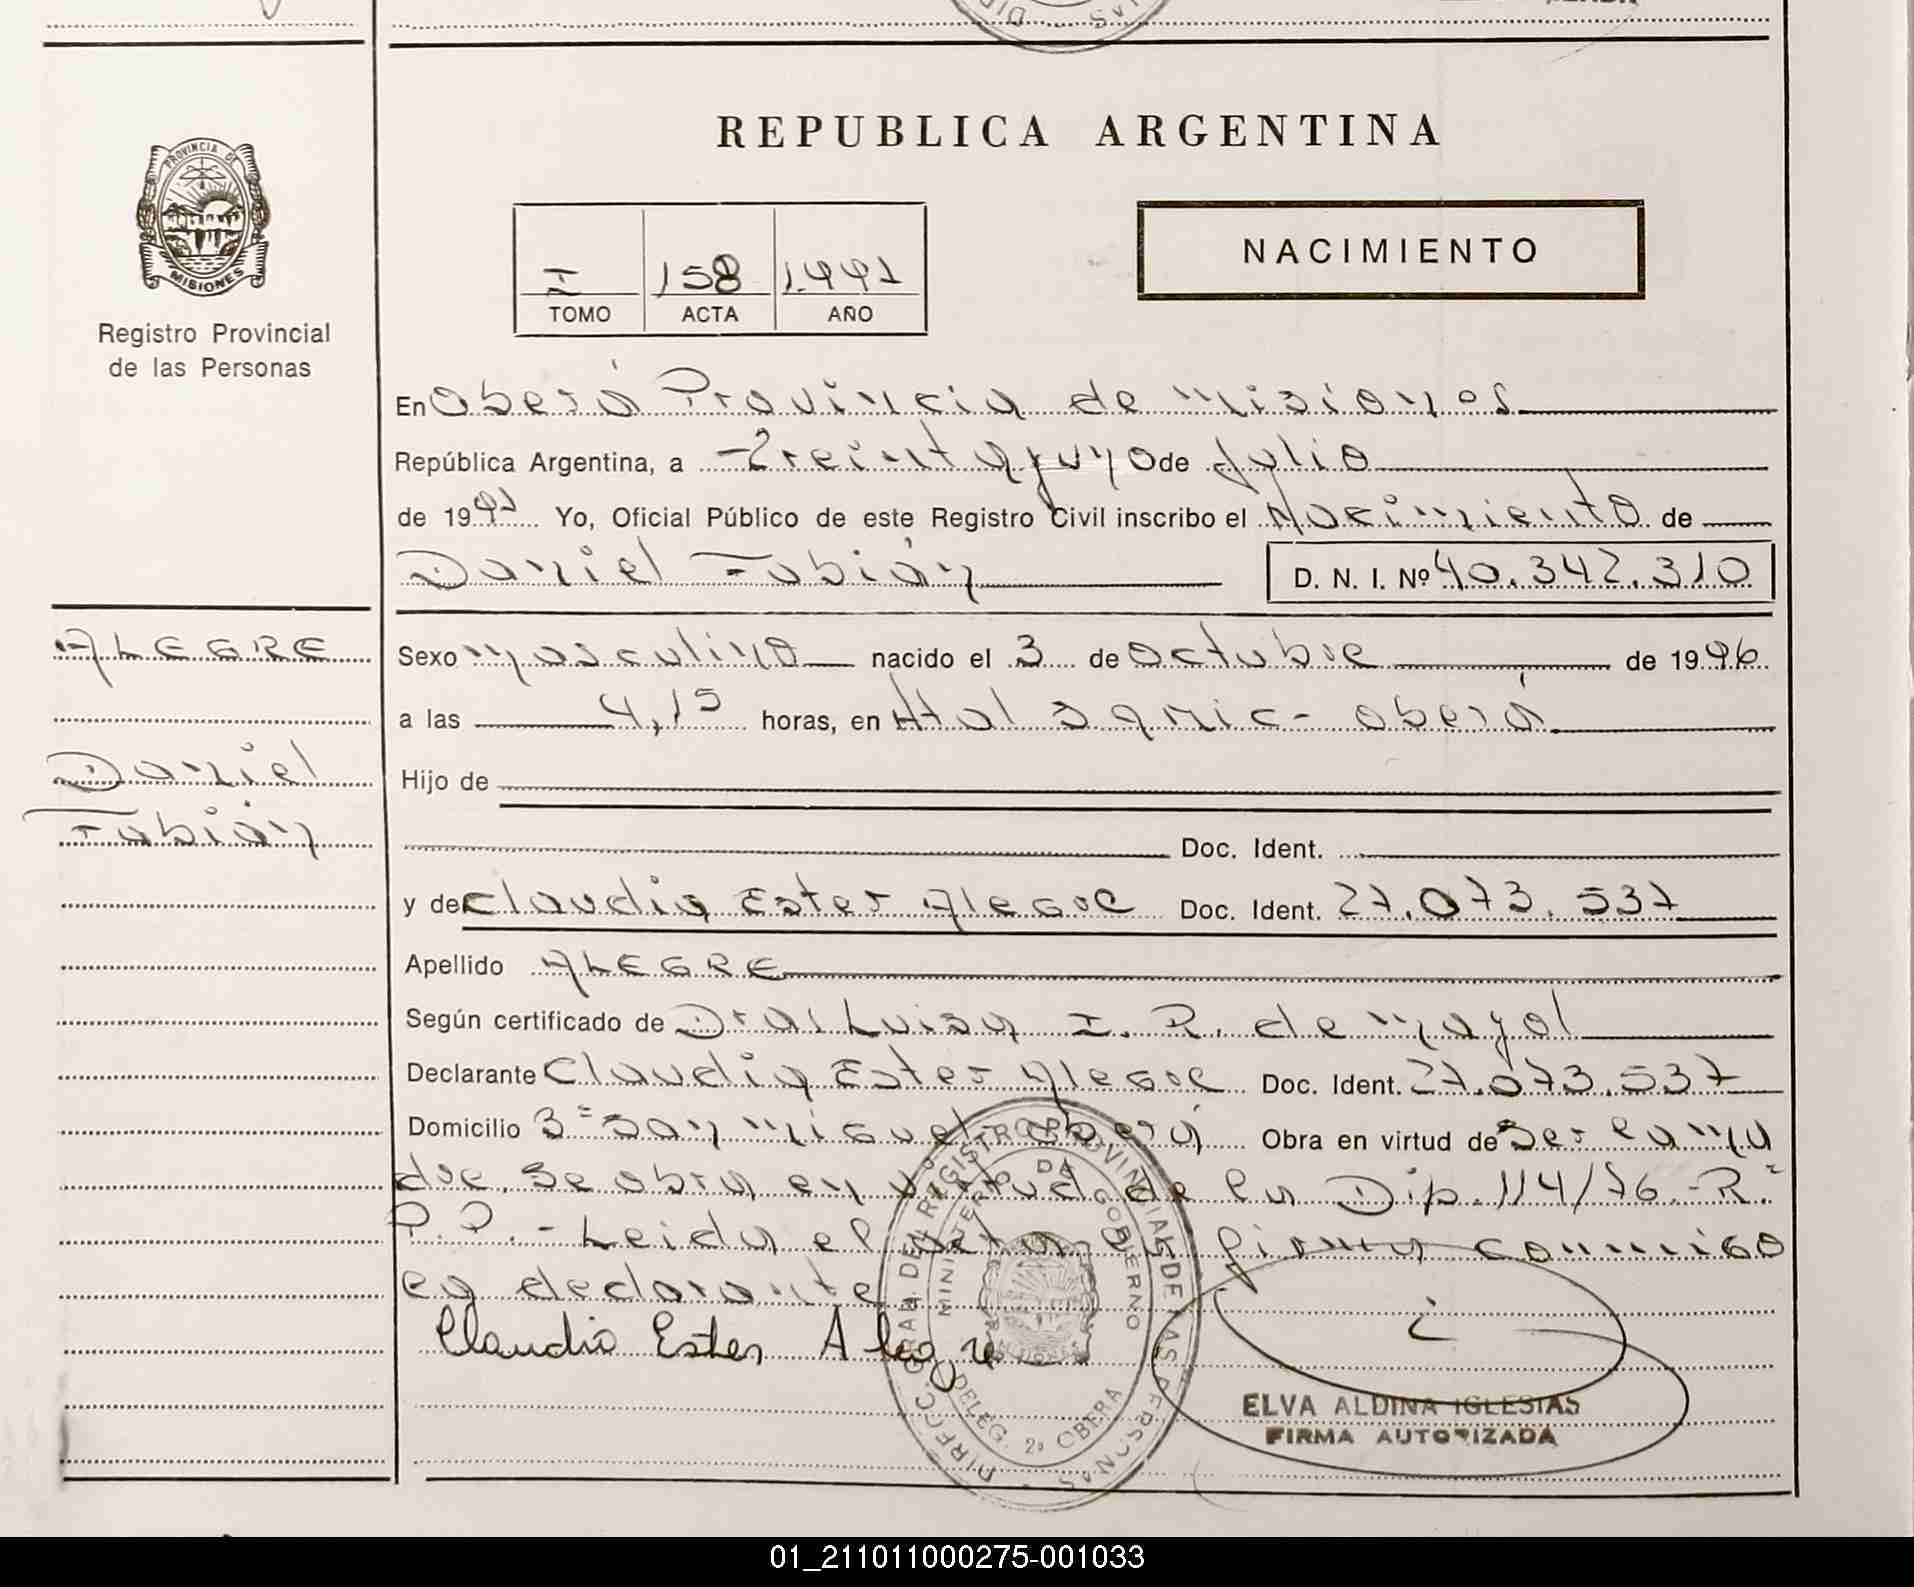 REPUBLICA ARGENTINA
PROVINCIA DE
MISIONES
Registro Provincial
de las Personas
I 158 1.997
TOMO ACTA AÑO
NACIMIENTO
En Oberá Provincia de Misiones
República Argentina, a Treinta y uno de Julio
de 1997 Yo, Oficial Público de este Registro Civil inscribo el Nacimiento de
Daniel Fabián D. N. I. Nº 40.342.310
ALEGRE
Daniel
Fabián
Sexo masculino nacido el 3 de Octubre de 1996
a las 4,15 horas, en Htal Samic - Oberá
Hijo de
Doc. Ident.
y de Claudia Ester Alegre Doc. Ident. 27.073.537
Apellido ALEGRE
Según certificado de Dra: Luisa I. R. de Mayol
Declarante Claudia Ester Alegre Doc. Ident. 27.073.537
Domicilio 3= San Miguel Oberá Obra en virtud de Ser la ma
dre. Se obra en virtud de la Dip. 114/76 - R.
P. P. - Leida el acta la firma conmigo
la declarante
Claudia Ester Alegre
DIRECC. GRAL. DEL REGISTRO PROVINCIAL DE LAS PERSONAS
MINISTERIO DE GOBIERNO
DELEG. 2ª OBERA
ELVA ALDINA IGLESIAS
FIRMA AUTORIZADA
01_211011000275-001033